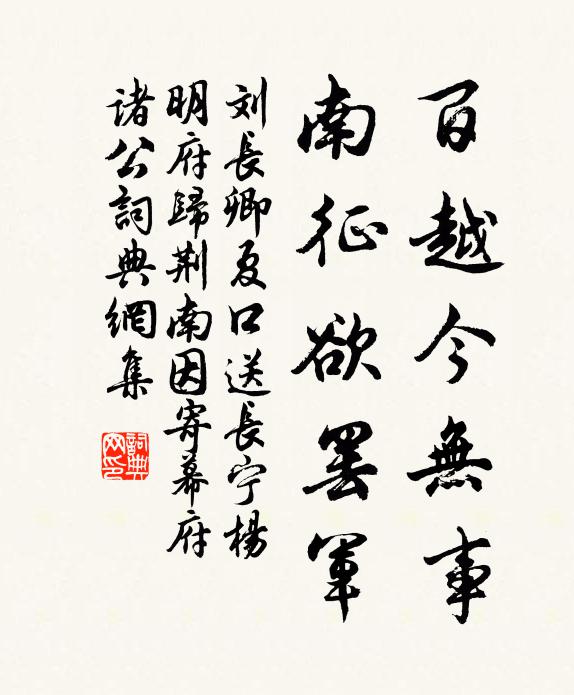 百越今無事
南征欲罷軍
刘長卿夏口送長宁楊
明府歸荆南因寄幕府
諸公詞典網集
詞典网印